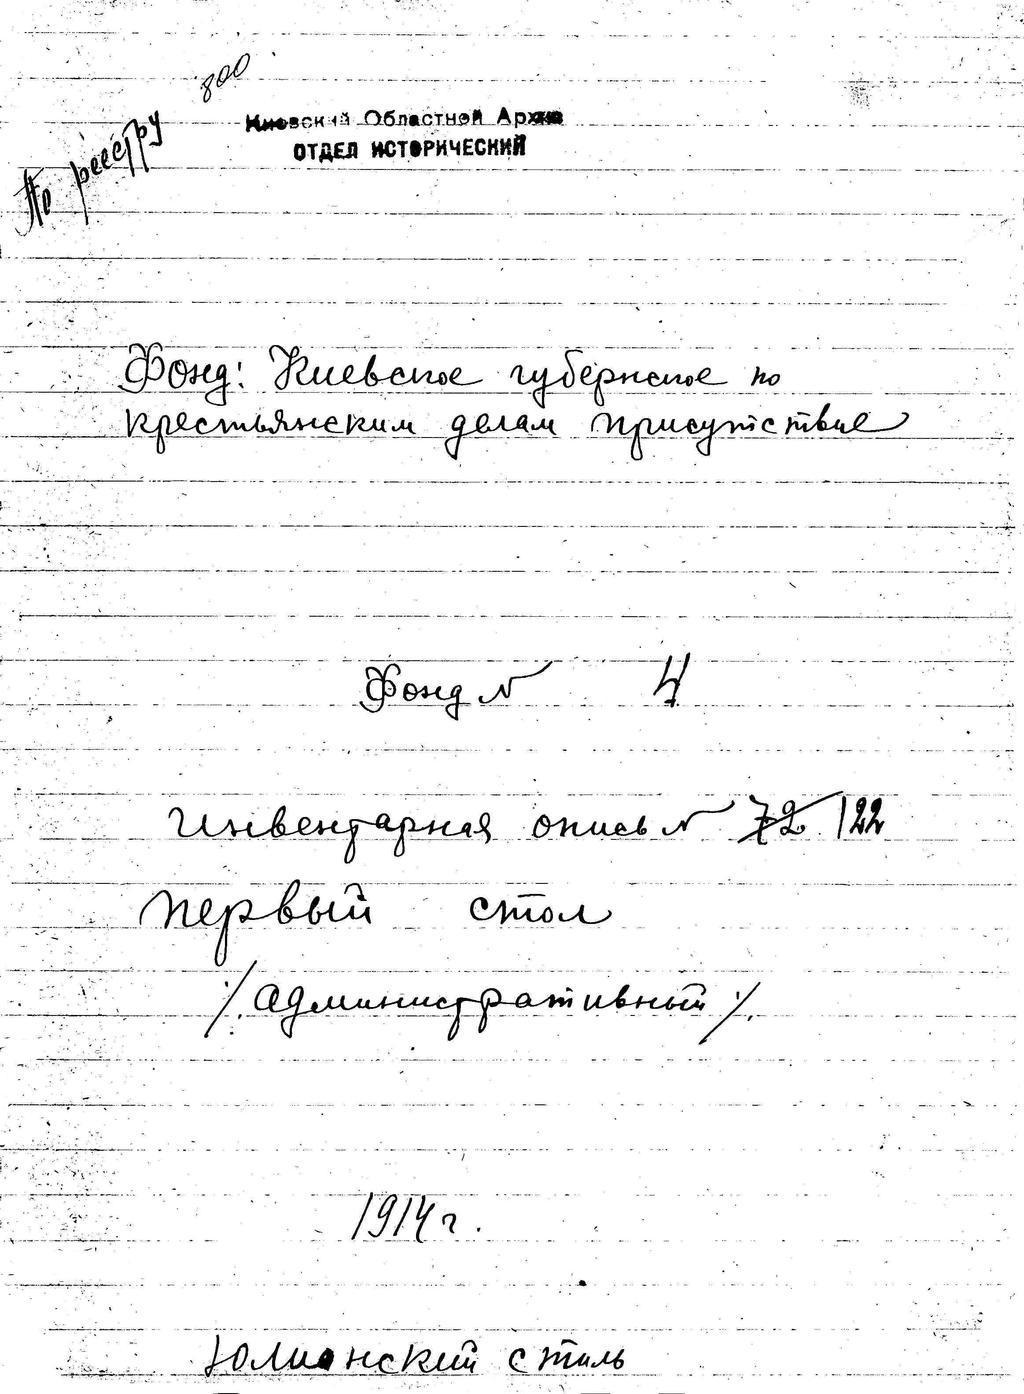 800
По реестру
Киевский Областной Архив
ОТДЕЛ ИСТОРИЧЕСКИЙ
Фонд: Киевское губернское по
крестьянским делам присутствие
Фонд № 4
Инвентарная опись № 72 122
Первый стол
/.административный/.
1914 г.
Юлианский стиль